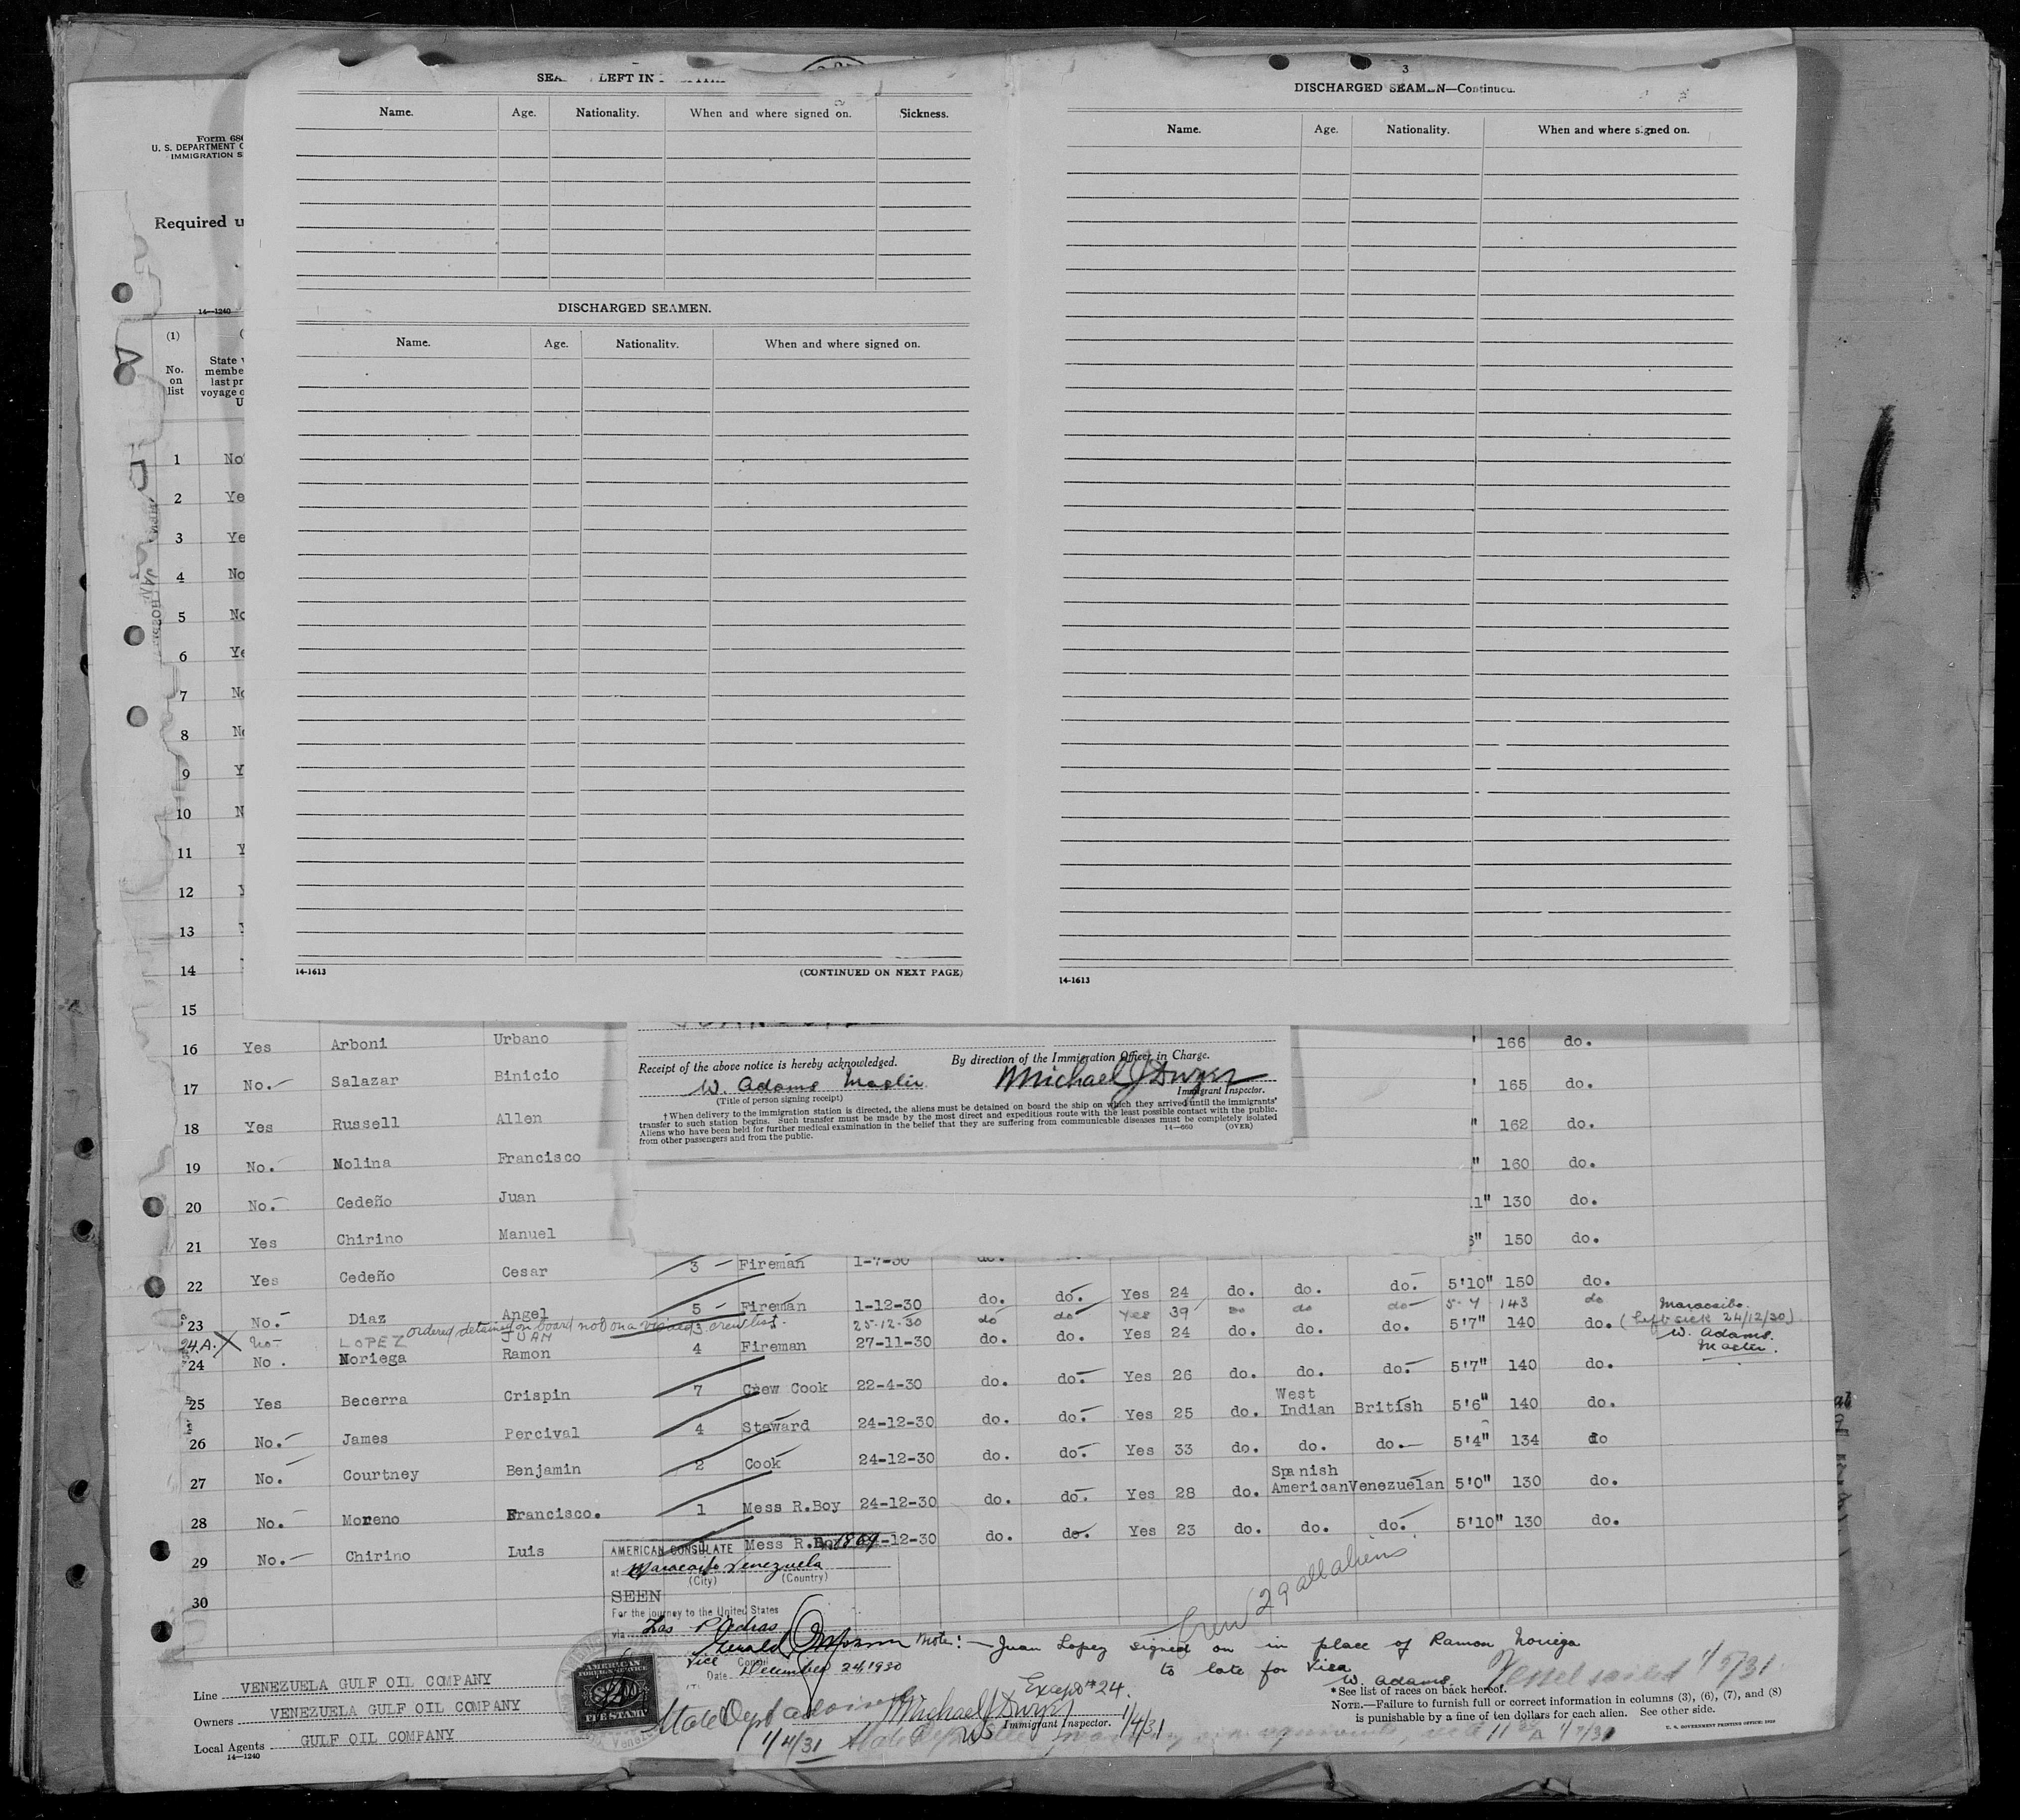 SEA LEFT IN
Name. Age. Nationality. When and where signed on. Sickness.
DISCHARGED SEAMEN.
Name. Age. Nationality. When and where signed on.
14-1613 (CONTINUED ON NEXT PAGE)
3
DISCHARGED SEAMEN—Continued.
Name. Age. Nationality. When and where signed on.
14-1613
Form 68
U. S. DEPARTMENT O
IMMIGRATION S
Required u
14—1240
(1)
No. on list
State
membe
last pr
voyage o
U
1 No
2 Ye
3 Ye
4 No
5 No
6 Ye
7 No
8 No
9 Y
10 N
11 Y
12
13
14
15
Receipt of the above notice is hereby acknowledged. By direction of the Immigration Officer in Charge.
W. Adams Master Michael J Dwyer
(Title of person signing receipt) Immigrant Inspector.
† When delivery to the immigration station is directed, the aliens must be detained on board the ship on which they arrived until the immigrants'
transfer to such station begins. Such transfer must be made by the most direct and expeditious route with the least possible contact with the public.
Aliens who have been held for further medical examination in the belief that they are suffering from communicable diseases must be completely isolated
from other passengers and from the public. 14—660 (OVER)
16 Yes Arboni Urbano 166 do.
17 No. Salazar Binicio 165 do.
18 Yes Russell Allen 162 do.
19 No. Molina Francisco 160 do.
20 No. Cedeño Juan 1" 130 do.
21 Yes Chirino Manuel 150 do.
22 Yes Cedeño Cesar 3 Fireman 1-7-30 do.
23 No. Diaz Angel 5 Fireman 1-12-30 do. do. Yes 24 do. do. do. 5'10" 150 do.
ordered detained on board not on a visaed crew list.
24.A. X No LOPEZ JUAN 3 25-12-30 do do Yes 39 do do do 5-4 143 do
24 No. Noriega Ramon 4 Fireman 27-11-30 do. do. Yes 24 do. do. do. 5'7" 140 do. (Left sick 24/12/30)
Maracaibo.
W. Adams.
Master.
25 Yes Becerra Crispin 7 Crew Cook 22-4-30 do. do. Yes 26 do. do. do. 5'7" 140 do.
26 No. James Percival 4 Steward 24-12-30 do. do. Yes 25 do. West Indian British 5'6" 140 do.
27 No. Courtney Benjamin 2 Cook 24-12-30 do. do. Yes 33 do. do. do. 5'4" 134 do
28 No. Moreno Francisco. 1 Mess R.Boy 24-12-30 do. do. Yes 28 do. Spanish American Venezuelan 5'0" 130 do.
29 No. Chirino Luis Mess R.Bo -12-30 do. do. Yes 23 do. do. do. 5'10" 130 do.
30
AMERICAN CONSULATE
at Maracaibo Venezuela
(City) (Country)
SEEN
For the journey to the United States
via Las Piedras
Vice Consul
Date December 24, 1930
AMERICAN
FOREIGN SERVICE
FEE STAMP
Crew 29 all aliens
Note: — Juan Lopez signed on in place of Ramon Noriega
to late for Visa
W. Adams.
Vessel sailed
Except #24.
State Dept
Michael J Dwyer 1/4/31
Immigrant Inspector.
1/4/31
Line VENEZUELA GULF OIL COMPANY
Owners VENEZUELA GULF OIL COMPANY
Local Agents GULF OIL COMPANY
14—1240
*See list of races on back hereof.
NOTE.—Failure to furnish full or correct information in columns (3), (6), (7), and (8)
is punishable by a fine of ten dollars for each alien. See other side.
U. S. GOVERNMENT PRINTING OFFICE: